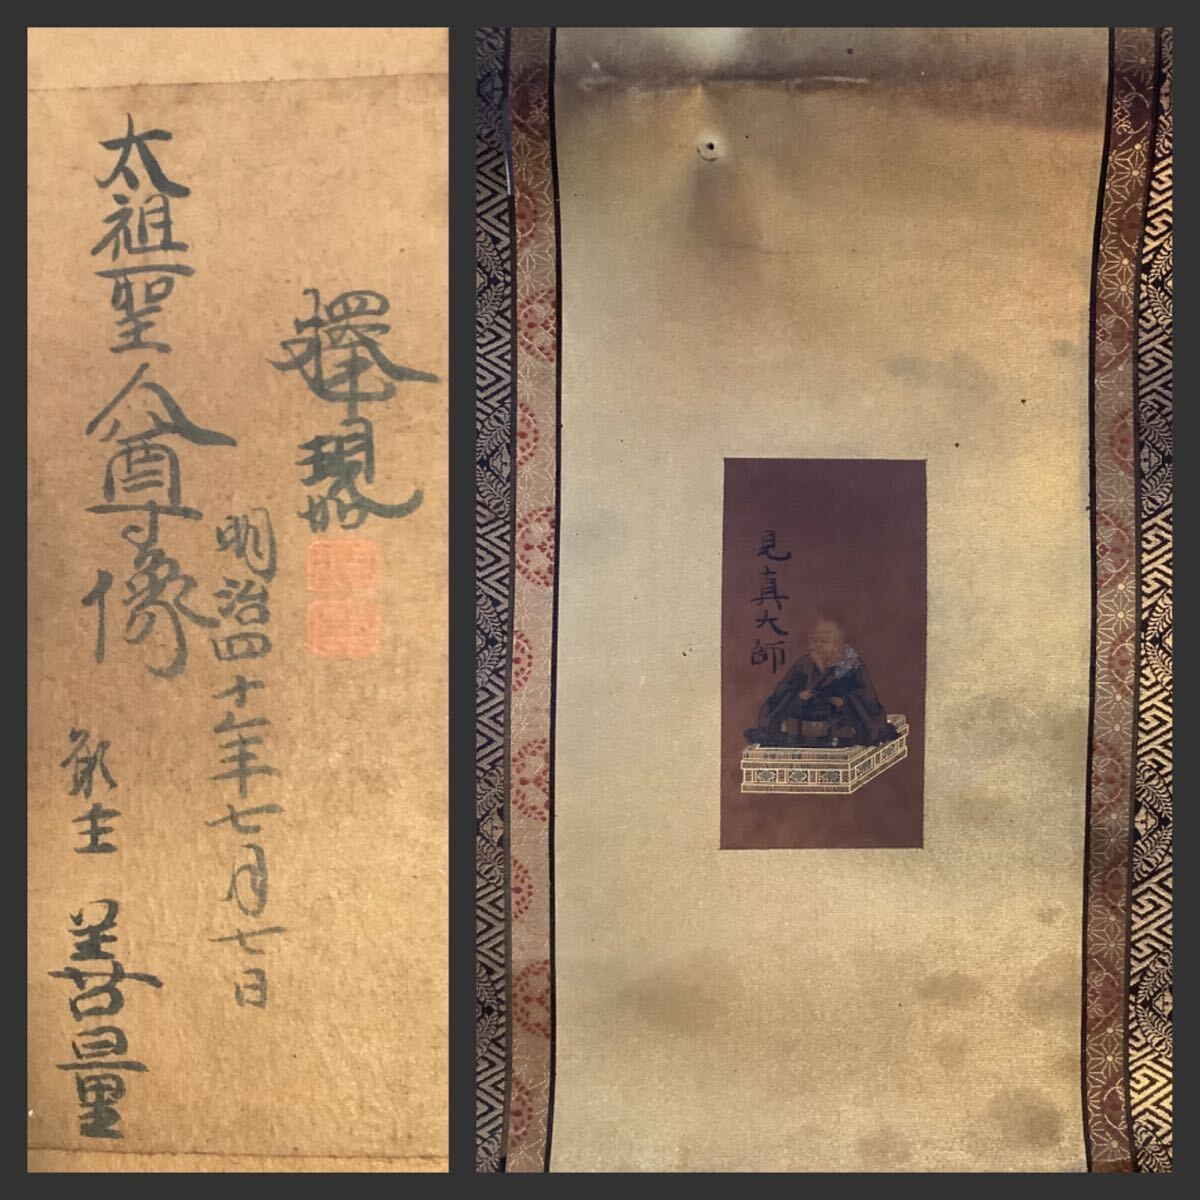 釋現如
明治四十年七月七日
太祖聖人尊像
願主 善量
見真大師